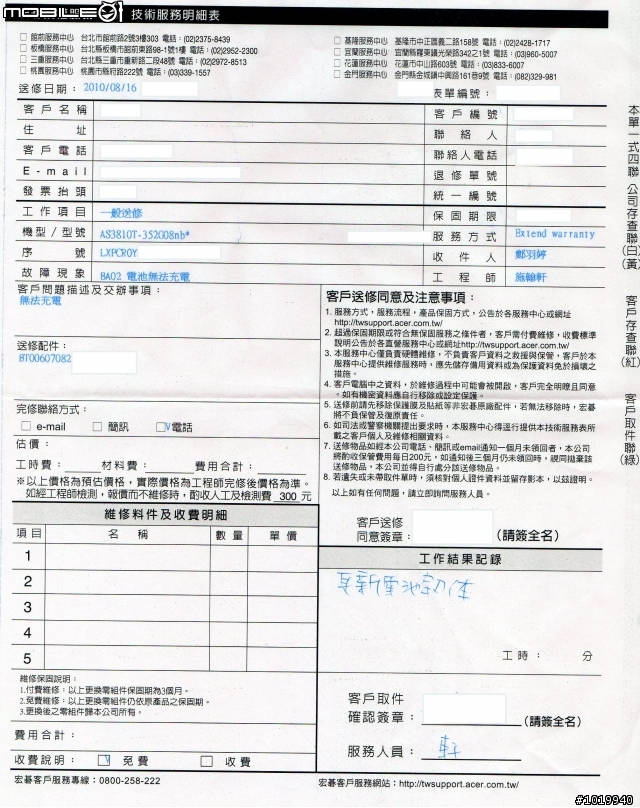 MOBILE01 技術服務明細表
□ 館前服務中心 台北市館前路2號3樓303 電話：(02)2375-8439
□ 板橋服務中心 台北縣板橋市館前東路98-1號1樓 電話：(02)2952-2300
□ 三重服務中心 台北縣三重市重新路二段48號 電話：(02)2972-8513
□ 桃園服務中心 桃園市縣府路222號 電話：(03)339-1557
□ 基隆服務中心 基隆市中正區義二路158號 電話：(02)2428-1717
□ 宜蘭服務中心 宜蘭縣羅東鎮光榮路342之1號 電話：(03)960-5007
□ 花蓮服務中心 花蓮市中山路603號 電話：(03)833-6007
□ 金門服務中心 金門縣金城鎮中興路161巷9號 電話：(082)329-981
送修日期：2010/08/16
表單編號：
客戶名稱
客戶編號
住址
聯絡人
客戶電話
聯絡人電話
E-mail
退修單號
發票抬頭
統一編號
工作項目 一般送修
保固期限
機型/型號 AS3810T-352G08nb*
服務方式 Extend warranty
序號 LXPCR0Y
收件人 鄭羽婷
故障現象 BA02 電池無法充電
工程師 施翰軒
客戶問題描述及交辦事項：
無法充電
送修配件：
BT00607082
完修聯絡方式：
□ e-mail □ 簡訊 ☑ 電話
估價：
工時費： 材料費： 費用合計：
※以上價格為預估價格，實際價格為工程師完修後價格為準。
如經工程師檢測，報價而不維修時，酌收人工及檢測費 300 元
客戶送修同意及注意事項：
1. 服務方式，服務流程，產品保固方式，公告於各服務中心或網址
http://twsupport.acer.com.tw/
2. 超過保固期限或符合無保固服務之條件者，客戶需付費維修，收費標準
說明公告於各直營服務中心或網址http://twsupport.acer.com.tw/
3. 本服務中心僅負責硬體維修，不負責客戶資料之救援與保管，客戶於本
服務中心提供維修服務時，應先儲存備用資料或為保護資料免於損壞之
措施。
4. 客戶電腦中之資料，於維修過程中可能會被開啟，客戶完全明瞭且同意
。如有機密資料應自行移除或設定保護。
5. 送修前請先移除保護膜及貼紙等非宏碁原廠配件，若無法移除時，宏碁
將不負保管及復原責任。
6. 如司法或警察機關提出要求時，本服務中心得逕行提供本技術服務表所
載之客戶個人及維修相關資料。
7. 送修物品如經本公司電話、簡訊或email通知一個月未領回者，本公司
將酌收保管費用每日200元，如通知後三個月仍未領回時，視同拋棄該
送修物品，本公司並得自行處分該送修物品。
8. 若遺失或未帶取件單時，須核對個人證件資料並留存影本，以茲證明。
以上如有任何問題，請立即詢問服務人員。
客戶送修
同意簽章： (請簽全名)
維修料件及收費明細
項目 名稱 數量 單價
1
2
3
4
5
工作結果記錄
更新電池韌体
工時： 分
維修保固說明：
1.付費維修：以上更換零組件保固期為3個月。
2.免費維修：以上更換零組件仍依原產品之保固期。
3.更換後之零組件歸本公司所有。
費用合計：
收費說明： ☑ 免費 □ 收費
客戶取件
確認簽章： (請簽全名)
服務人員： 軒
宏碁客戶服務專線：0800-258-222
宏碁客戶服務網站：http://twsupport.acer.com.tw/
本單一式四聯 公司存查聯(白)(黃) 客戶存查聯(紅) 客戶取件聯(綠)
#1019940